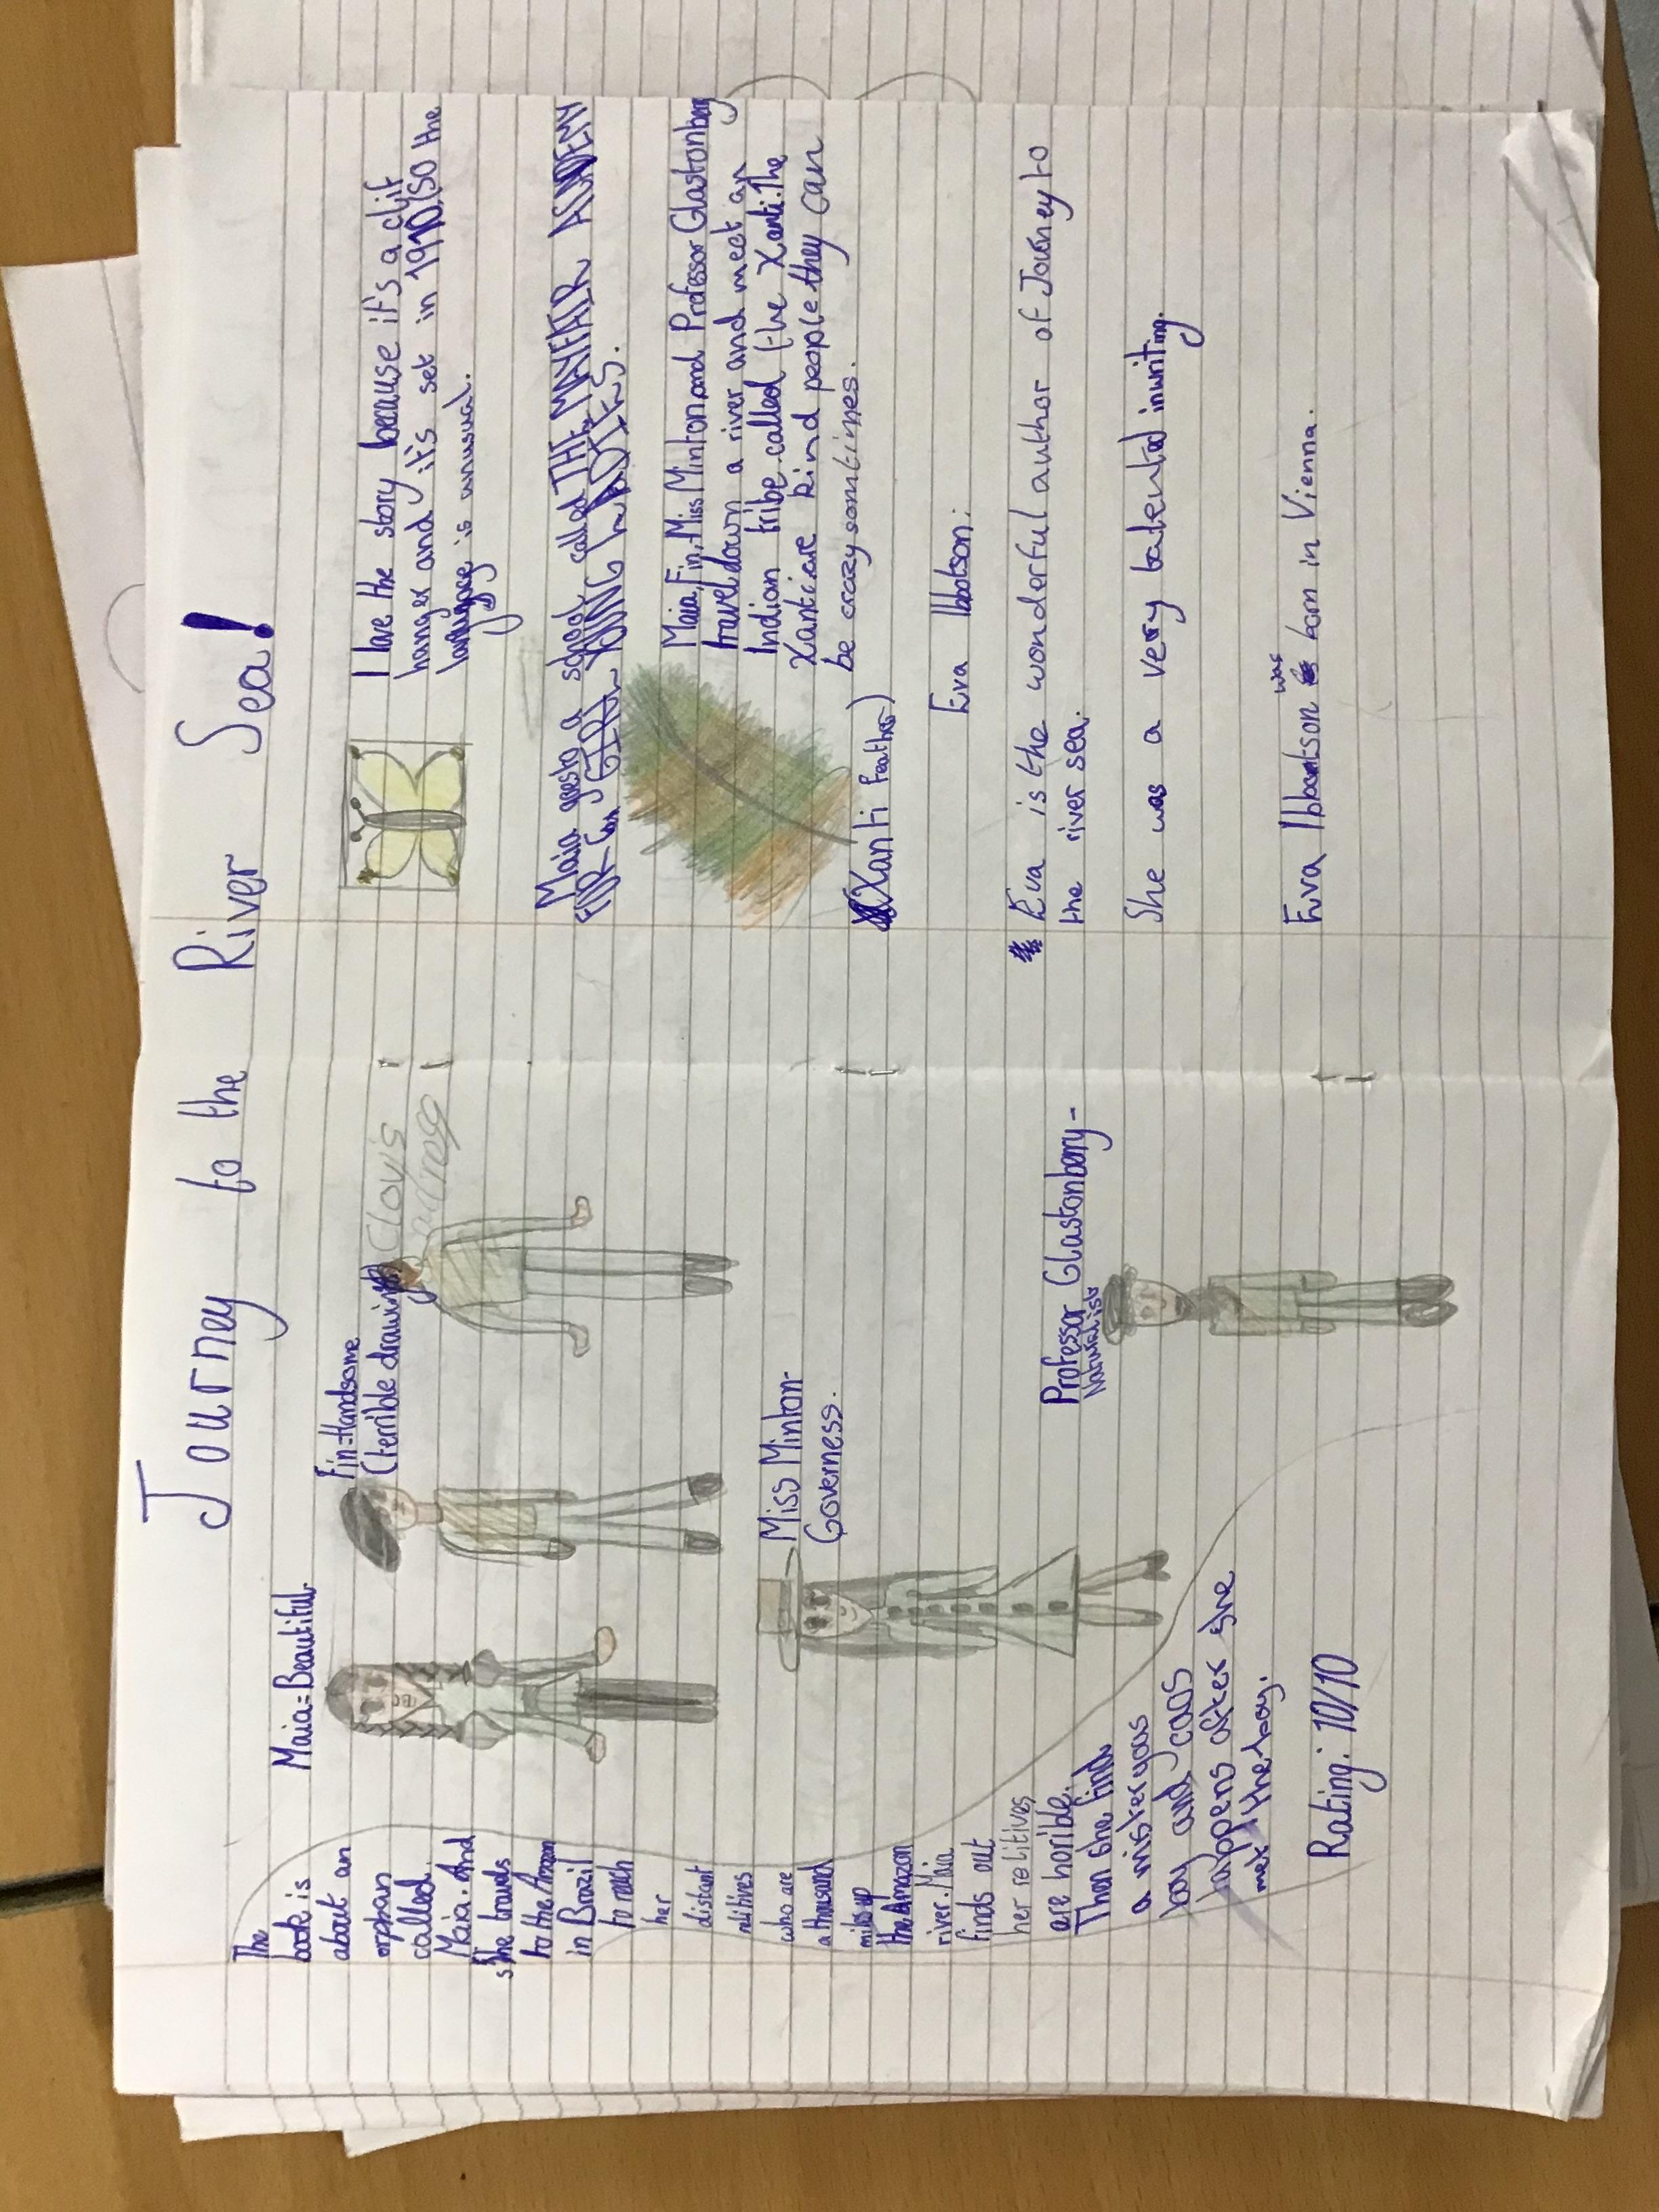 Journey to the River Sea!
The
book is
about an
orphan
called
Maia. And
She travels
to the Amazon
in Brazil
to reach
her
distant
relitives
who are
a thousand
miles up
the Amazon
river. Maia
finds out
her relitives
are horible.
Then she finds
a misteryas
boy and caos
happens after she
met the boy.
Rating: 10/10
Maia=Beautiful.
Fin=Handsome
(terrible drawing)
Clovis
Miss Minton-
Governess.
Professor Glastonberry-
Naturalist
I love the story because it's a clif
hanger and it's set in 1910, so the
language is unusual.
Maia goes to a school called THE MAYFAIR ACADEMY
FOR YOUNG LADIES.
Maia, Fin, Miss Minton and Professor Glastonberry
travel down a river and meet an
Indian tribe called the Xanti. The
Xanti are kind people they can
be crazy somtimes.
(Xanti Feather)
Eva Ibbotson:
Eva is the wonderful author of Journey to
the river sea.
She was a very talented in writing.
Eva Ibbotson was born in Vienna.